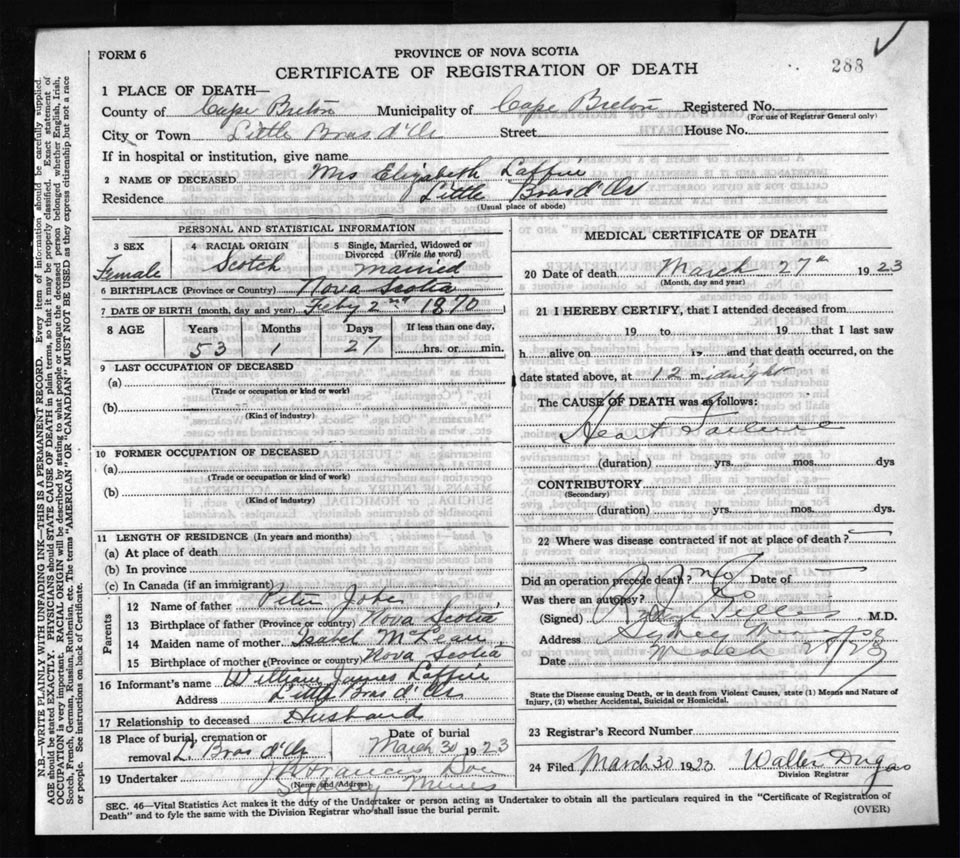 FORM 6
PROVINCE OF NOVA SCOTIA
CERTIFICATE OF REGISTRATION OF DEATH
288
1 PLACE OF DEATH—
County of Cape Breton Municipality of Cape Breton Registered No.
(For use of Registrar General only)
City or Town Little Bras d'Or Street House No.
If in hospital or institution, give name
2 NAME OF DECEASED Mrs Elizabeth Laffin
Residence Little Bras d'Or
(Usual place of abode)
PERSONAL AND STATISTICAL INFORMATION
3 SEX Female
4 RACIAL ORIGIN Scotch
5 Single, Married, Widowed or Divorced (Write the word) Married
6 BIRTHPLACE (Province or Country) Nova Scotia
7 DATE OF BIRTH (month, day and year) Feby 2nd 1870
8 AGE Years Months Days If less than one day,
53 1 27 hrs. or min.
9 LAST OCCUPATION OF DECEASED
(a)
(Trade or occupation or kind or work)
(b)
(Kind of industry)
10 FORMER OCCUPATION OF DECEASED
(a)
(Trade or occupation or kind of work)
(b)
(Kind of industry)
11 LENGTH OF RESIDENCE (In years and months)
(a) At place of death
(b) In province
(c) In Canada (if an immigrant)
Parents
12 Name of father Peter Jobes
13 Birthplace of father (Province or country) Nova Scotia
14 Maiden name of mother Isabel McLean
15 Birthplace of mother (Province or country) Nova Scotia
16 Informant's name William James Laffin
Address Little Bras d'Or
17 Relationship to deceased Husband
18 Place of burial, cremation or removal L. Bras d'Or
Date of burial March 30 1923
19 Undertaker Francis
(Name and Address) Sydney Mines
MEDICAL CERTIFICATE OF DEATH
20 Date of death March 27th 1923
(Month, day and year)
21 I HEREBY CERTIFY, that I attended deceased from
19 to 19 that I last saw
h alive on 19 and that death occurred, on the
date stated above, at 12 midnight
The CAUSE OF DEATH was as follows:
Heart Failure
(duration) yrs. mos. dys
CONTRIBUTORY
(Secondary)
(duration) yrs. mos. dys.
22 Where was disease contracted if not at place of death?
Did an operation precede death? No Date of
Was there an autopsy? No
(Signed) M.D.
Address Sydney Mines
Date March 28/23
State the Disease causing Death, or in death from Violent Causes, state (1) Means and Nature of
Injury, (2) whether Accidental, Suicidal or Homicidal.
23 Registrar's Record Number
24 Filed March 30 1923 Walter Dugas
Division Registrar
SEC. 46—Vital Statistics Act makes it the duty of the Undertaker or person acting as Undertaker to obtain all the particulars required in the "Certificate of Registration of
Death" and to fyle the same with the Division Registrar who shall issue the burial permit.
(OVER)
N.B.—WRITE PLAINLY WITH UNFADING INK—THIS IS A PERMANENT RECORD. Every item of information should be carefully supplied.
AGE should be stated EXACTLY. PHYSICIANS should STATE CAUSE OF DEATH in plain terms, so that it may be properly classified. Exact statement of
OCCUPATION is very important. RACIAL ORIGIN will be described by stating to what people or tongue the deceased person belonged whether English, Irish,
Scotch, French, German, Russian, Ruthenian, etc. The terms "AMERICAN" OR "CANADIAN" MUST NOT BE USED as they express citizenship but not a race
or people. See instructions on back of Certificate.